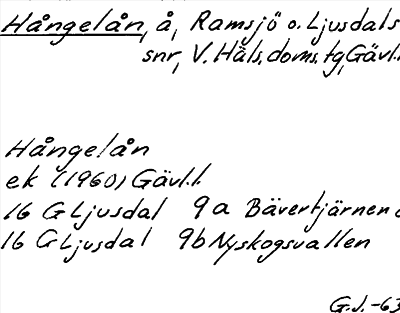 Hångelån, å, Ramsjö o. Ljusdals
snr, V. Häls. doms. tg, Gävl.
Hångelån
ek (1960) Gävl.l.
16 G Ljusdal 9a Bävertjärnen
16 G Ljusdal 9b Nyskogsvallen
G.J. -63